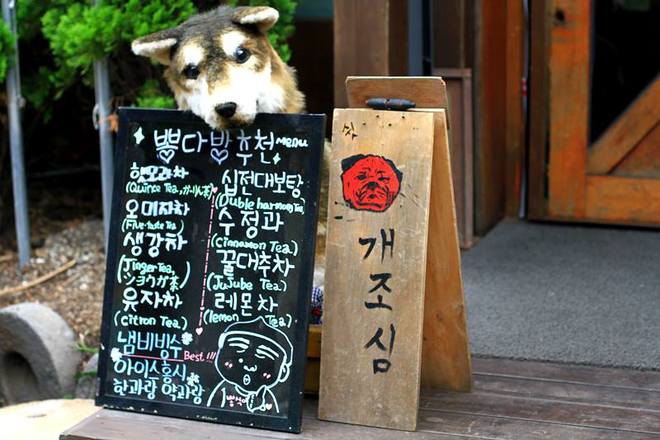 뽀다방 추천 Menu
핫모과차
(Quince Tea, カーリん茶)
오미자차
(Five-taste Tea)
생강차
(Jinger Tea,
ショウガ茶)
유자차
(citron Tea)
냄비빙수
Best!!!
아이스홍시
한과랑 약과랑
십전대보탕
(Duble harmony Tea)
수정과
(Cinnamon Tea)
꿀대추차
(JuJube Tea)
레몬차
(lemon Tea)
개조심